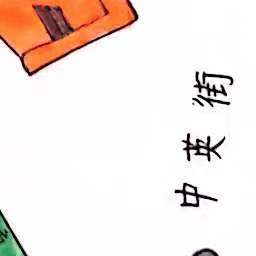 中英街